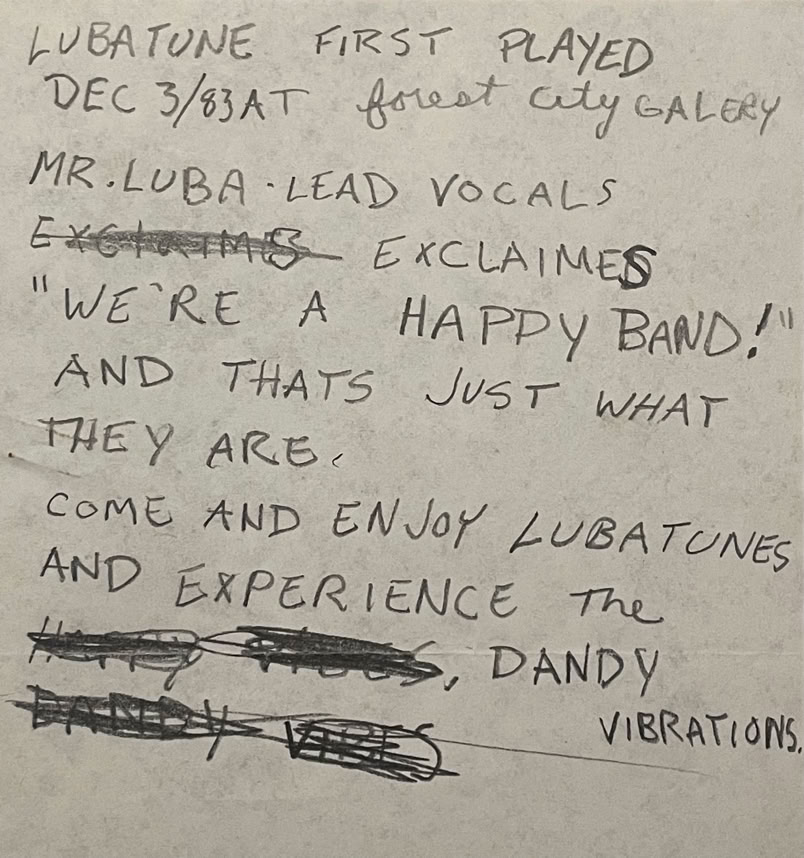 LUBATUNE FIRST PLAYED
DEC 3/83 AT forest city GALERY
MR. LUBA - LEAD VOCALS
EXCLAIMS EXCLAIMES
"WE'RE A HAPPY BAND!"
AND THATS JUST WHAT
THEY ARE.
COME AND ENJOY LUBATUNES
AND EXPERIENCE The
HAPPY VIBES, DANDY
DANDY VIBES VIBRATIONS.